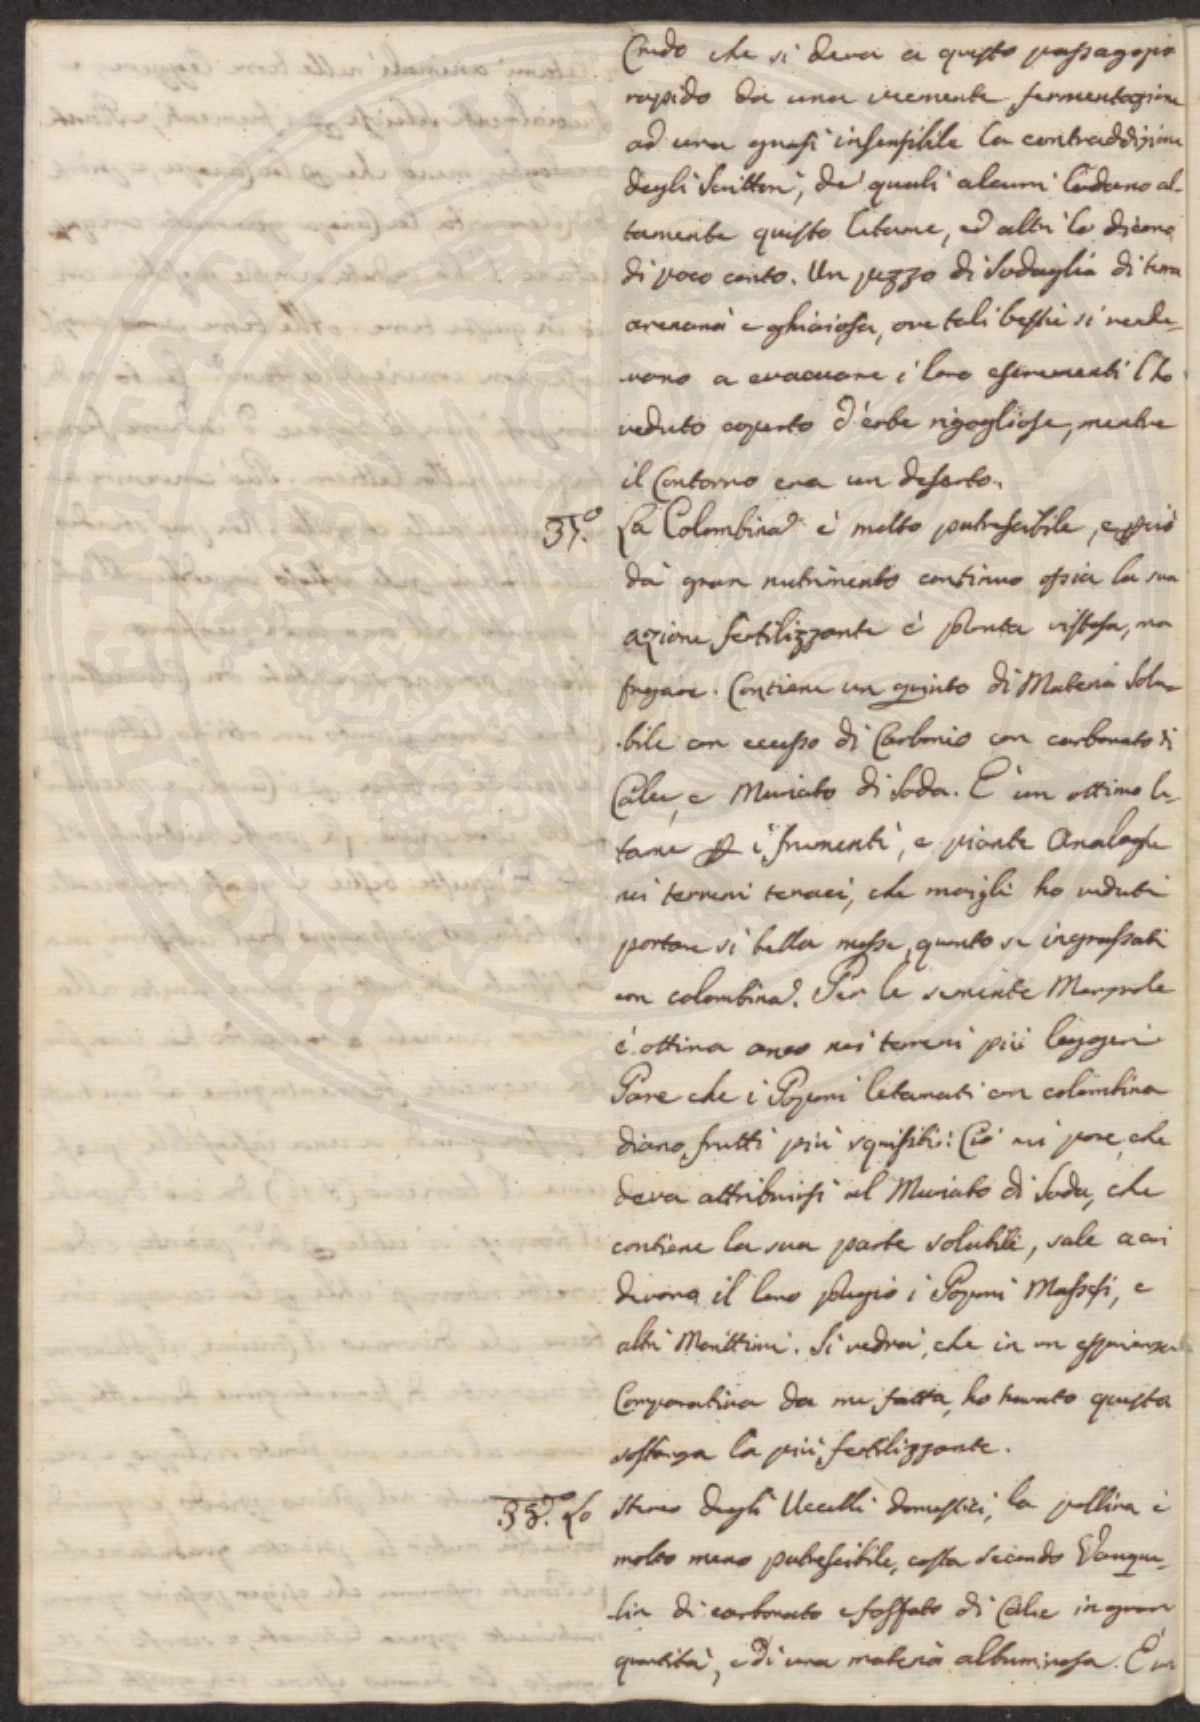 Credo che si deva a questo passaggio
rapido da una veemente fermentazione
ad una quasi insensibile la contraddizione
degli Scrittori, de' quali alcuni lodano al-
tamente questo letame, ed altri lo dicono
di poco conto. Un pezzo di Sodaglia di terra
arenaria e ghiaiosa, ove tali bestie si rende-
vano a evacuare i loro escrementi l'ho
veduto coperto d'erbe rigogliose, mentre
il Contorno era un deserto.
La Colombina è molto putrescibile, e però
dà gran nutrimento continuo ossia la sua
azione fertilizzante è pronta vistosa, ma
fugace. Contiene un quinto di Materia Solu-
bile con eccesso di Carbonio con carbonato di
Calce, e Muriato di Soda. È un ottimo le-
tame p i frumenti, e piante Analoghe
nei terreni tenaci, che mai gli ho veduti
portare sì bella messe, quanto se ingrassati
con colombina. Per le semente Marzuole
è ottima anco nei terreni più leggeri
Pare che i Poponi letamati con colombina
diano frutti più squisiti: Ciò mi pare, che
deva attribuirsi al Muriato di Soda, che
contiene la sua parte solubile, sale a cui
devono il loro pregio i Poponi
altri Marittimi. Si vedrà, che in un esperienza
Comparativa da me fatta, ho trovato questa
sostanza la più fertilizzante.
35.° Lo Sterco degli Uccelli domestici, la pollina è
molto meno putrescibile, costa secondo Vauque-
lin di carbonato e fosfato di Calce in gran
quantità, e di una materia albuminosa. È un